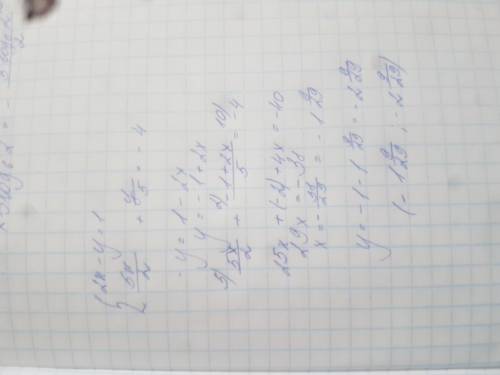 { 2x - y = 1
5x/2 + y/5 = -4
-y = 1 - 2x
y = -1 + 2x
5) 5x/2 + 2) -1+2x/5 = 10) -4
25x + (-2) + 4x = -40
29x = -38
x = -38/29 = -1 9/29
y = -1 - 1 9/29 = -2 9/29
(-1 9/29 ; -2 9/29)